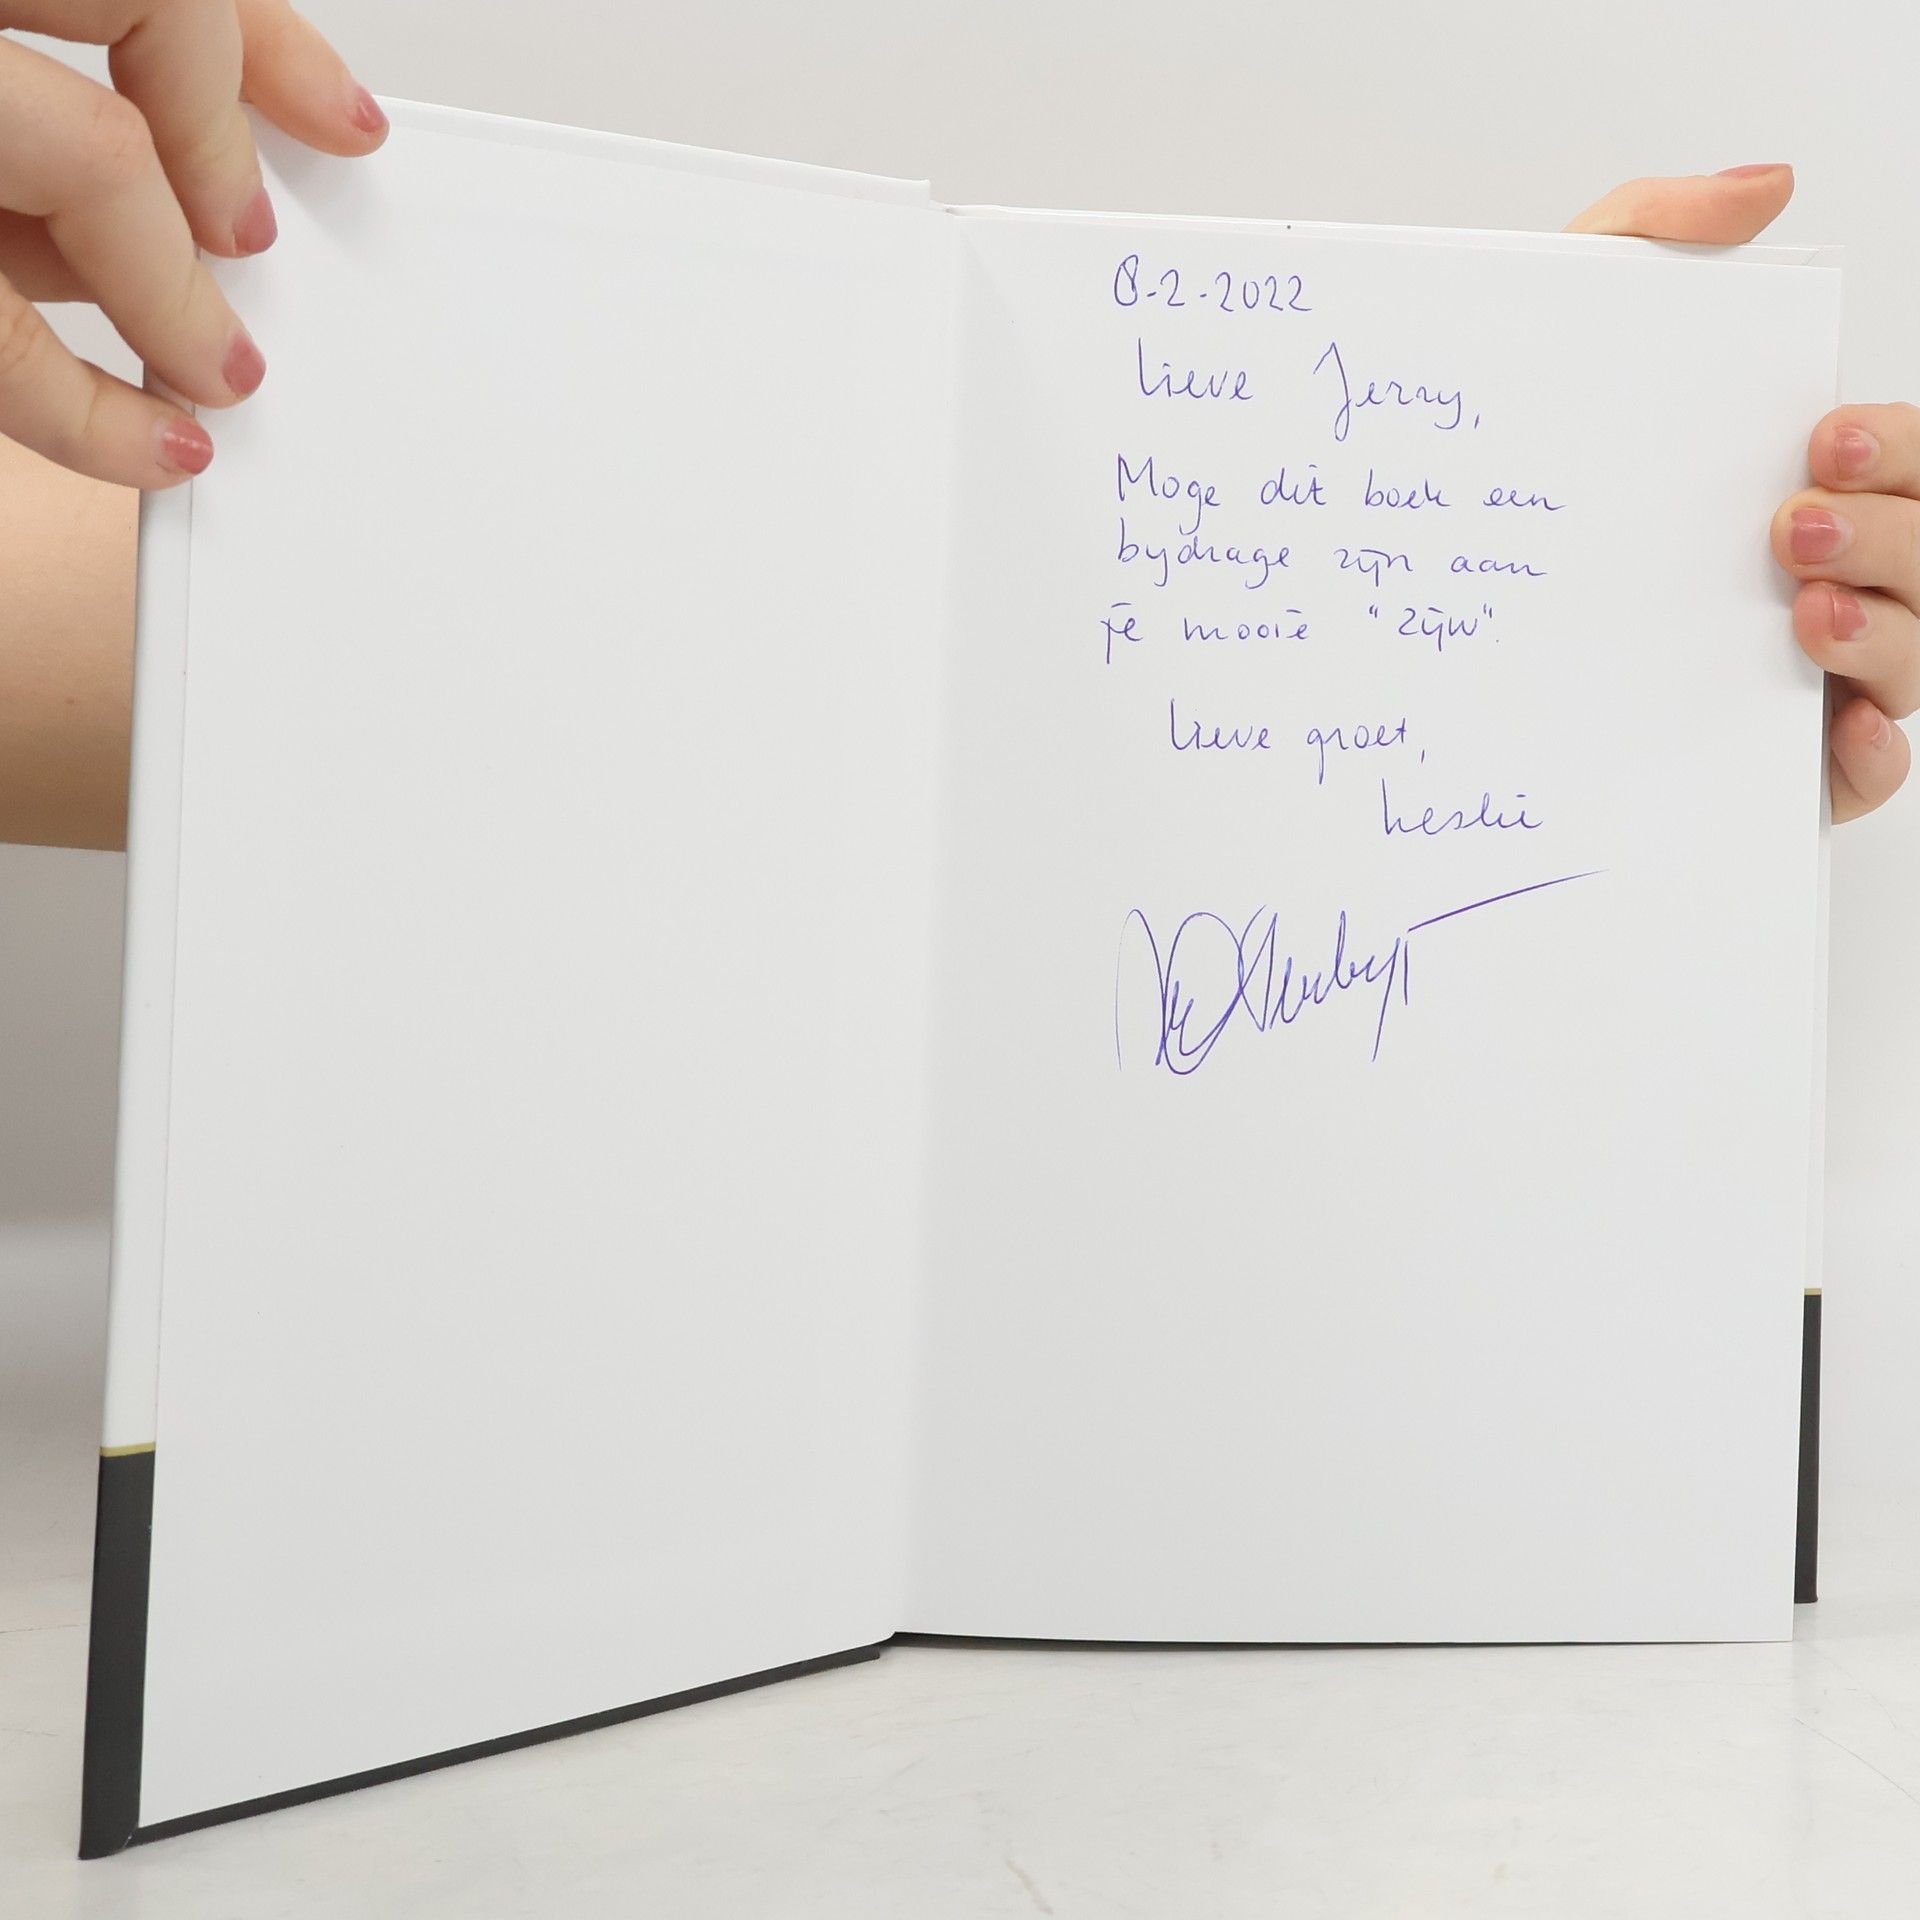 8-2-2022
Lieve Jerry,
Moge dit boek een
bijdrage zijn aan
je mooie "zijn".
Lieve groet,
Leslie